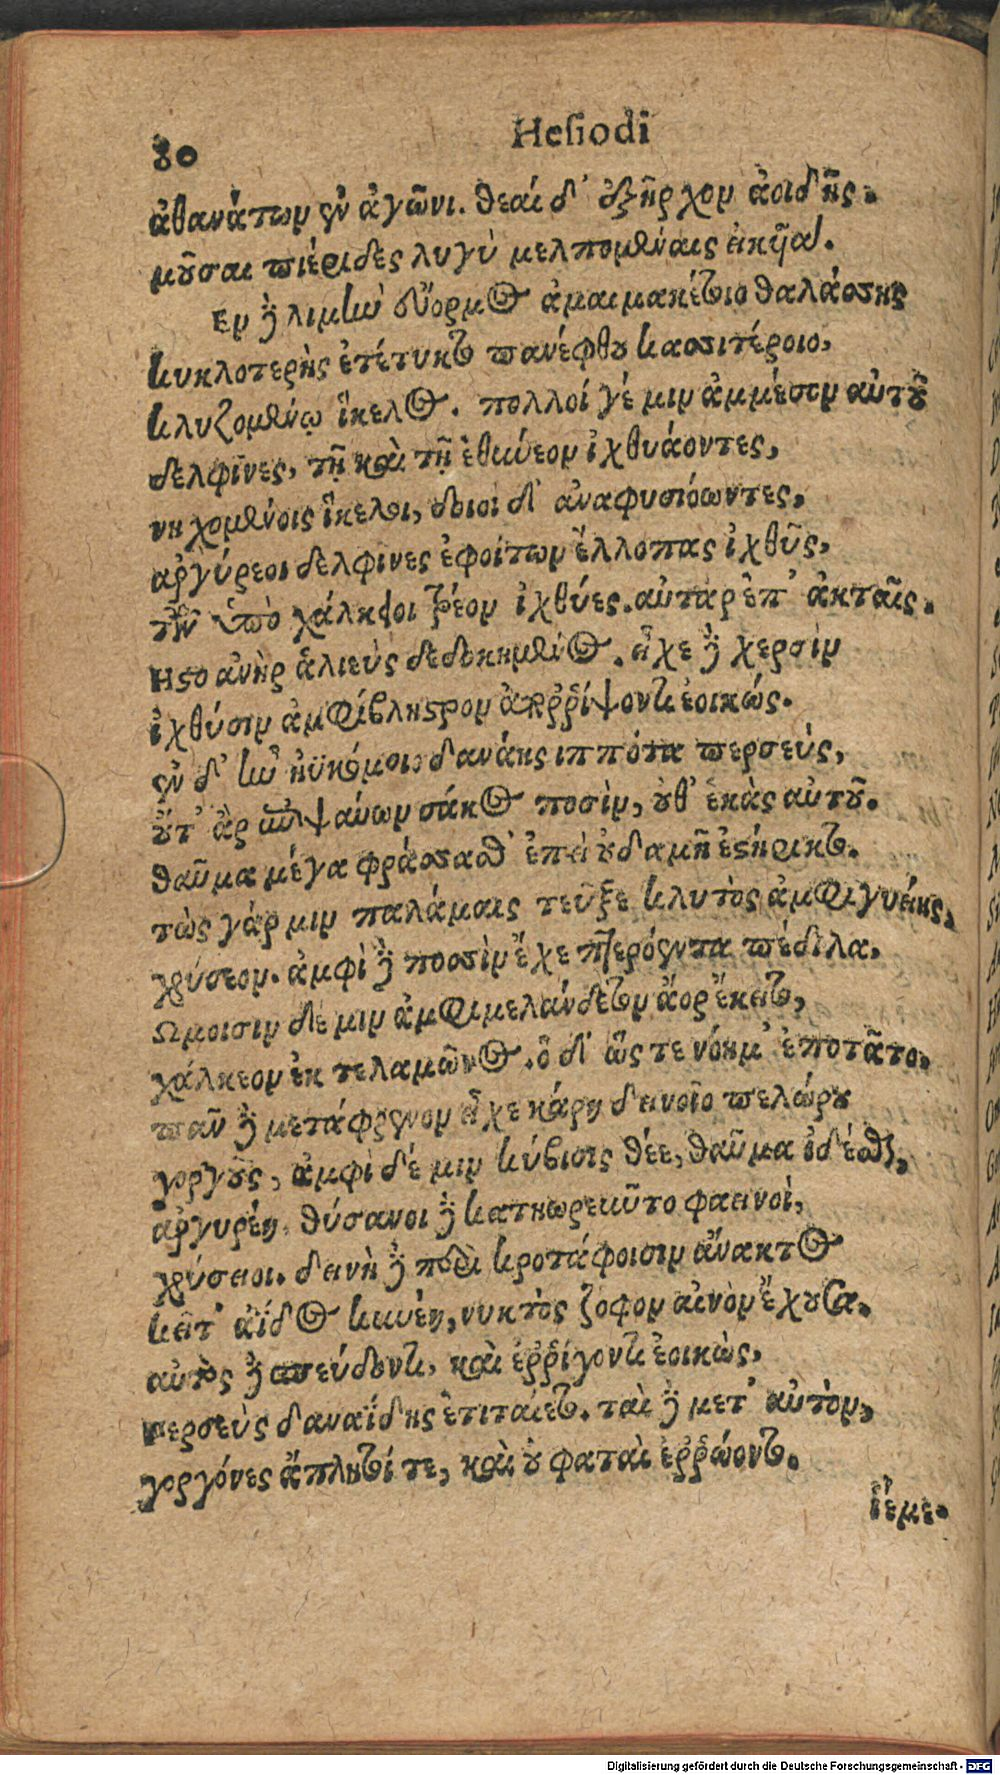 80
Hesiodi
ἀθανάτων ἐν ἀγῶνι. θεαί δ' ἐξῆρχον ἀοιδῆς.
μοῦσαι πιέριδες λιγὺ μελπομέναις εἰκῆαι.
Εν δὲ λιμὴν εὔορμος ἀμαιμακέτοιο θαλάσσης
κυκλοτερὴς ἐτέτυκτο πανέφθου κασσιτέροιο,
κλυζομένῳ ἴκελος. πολλοί γέ μιν ἀμμέσον αὐτοῦ
δελφῖνες, τῇ καὶ τῇ ἐθύνεον ἰχθυάοντες,
νηχομένοις ἴκελοι, δοιοὶ δ' ἀναφυσιόωντες,
ἀργύρεοι δελφῖνες ἐφοίτων ἔλλοπας ἰχθῦς,
τῶν ὑπὸ χάλκειοι τρέον ἰχθύες. αὐτὰρ ἐπ' ἀκταῖς.
Ηστο ἀνὴρ ἁλιεὺς δεδοκημένος. εἶχε δὲ χερσὶν
ἰχθύσιν ἀμφίβληστρον ἀπορρίψοντι ἐοικώς.
ἐν δ' ἦν ἠϋκόμοιο δανάης ἱππότα περσεύς,
οὔτ' ἂρ ἐπιψαύων σάκος ποσὶν, οὐθ' ἑκὰς αὐτοῦ.
θαῦμα μέγα φράσσασθ' ἐπεὶ οὐδαμῆ ἐστήρικτο.
τὼς γάρ μιν παλάμαις τεῦξε κλυτὸς ἀμφιγυήεις,
χρύσεον. ἀμφὶ δὲ ποσσὶν ἔχε πτερόεντα πέδιλα.
Ωμοισιν δέ μιν ἀμφιμελάνδετον ἄορ ἔκειτο,
χάλκεον ἐκ τελαμῶνος. ὃ δ' ὥς τε νόημ' ἐποτᾶτο.
πᾶν δὲ μετάφρενον εἶχε κάρη δεινοῖο πελώρου
γοργοῦς, ἀμφὶ δέ μιν κίβισις θέε, θαῦμα ἰδέσθαι,
ἀργυρέη. θύσανοι δὲ κατῃωρεῦντο φαεινοὶ,
χρύσειοι. δεινὴ δὲ περὶ κροτάφοισιν ἄνακτος
κεῖτ' ἀΐδος κυνέη, νυκτὸς ζοφον αἰνὸν ἔχουσα.
αὐτὸς δὲ σπεύδοντι, καὶ ἐρρίγοντι ἐοικὼς,
περσεὺς δαναΐδης ἐτιταίετο. ταὶ δὲ μετ' αὐτὸν,
γοργόνες ἄπλητοί τε, καὶ οὐ φαταὶ ἐρρώοντο.
ἱέμε.
Digitalisierung gefördert durch die Deutsche Forschungsgemeinschaft - DFG